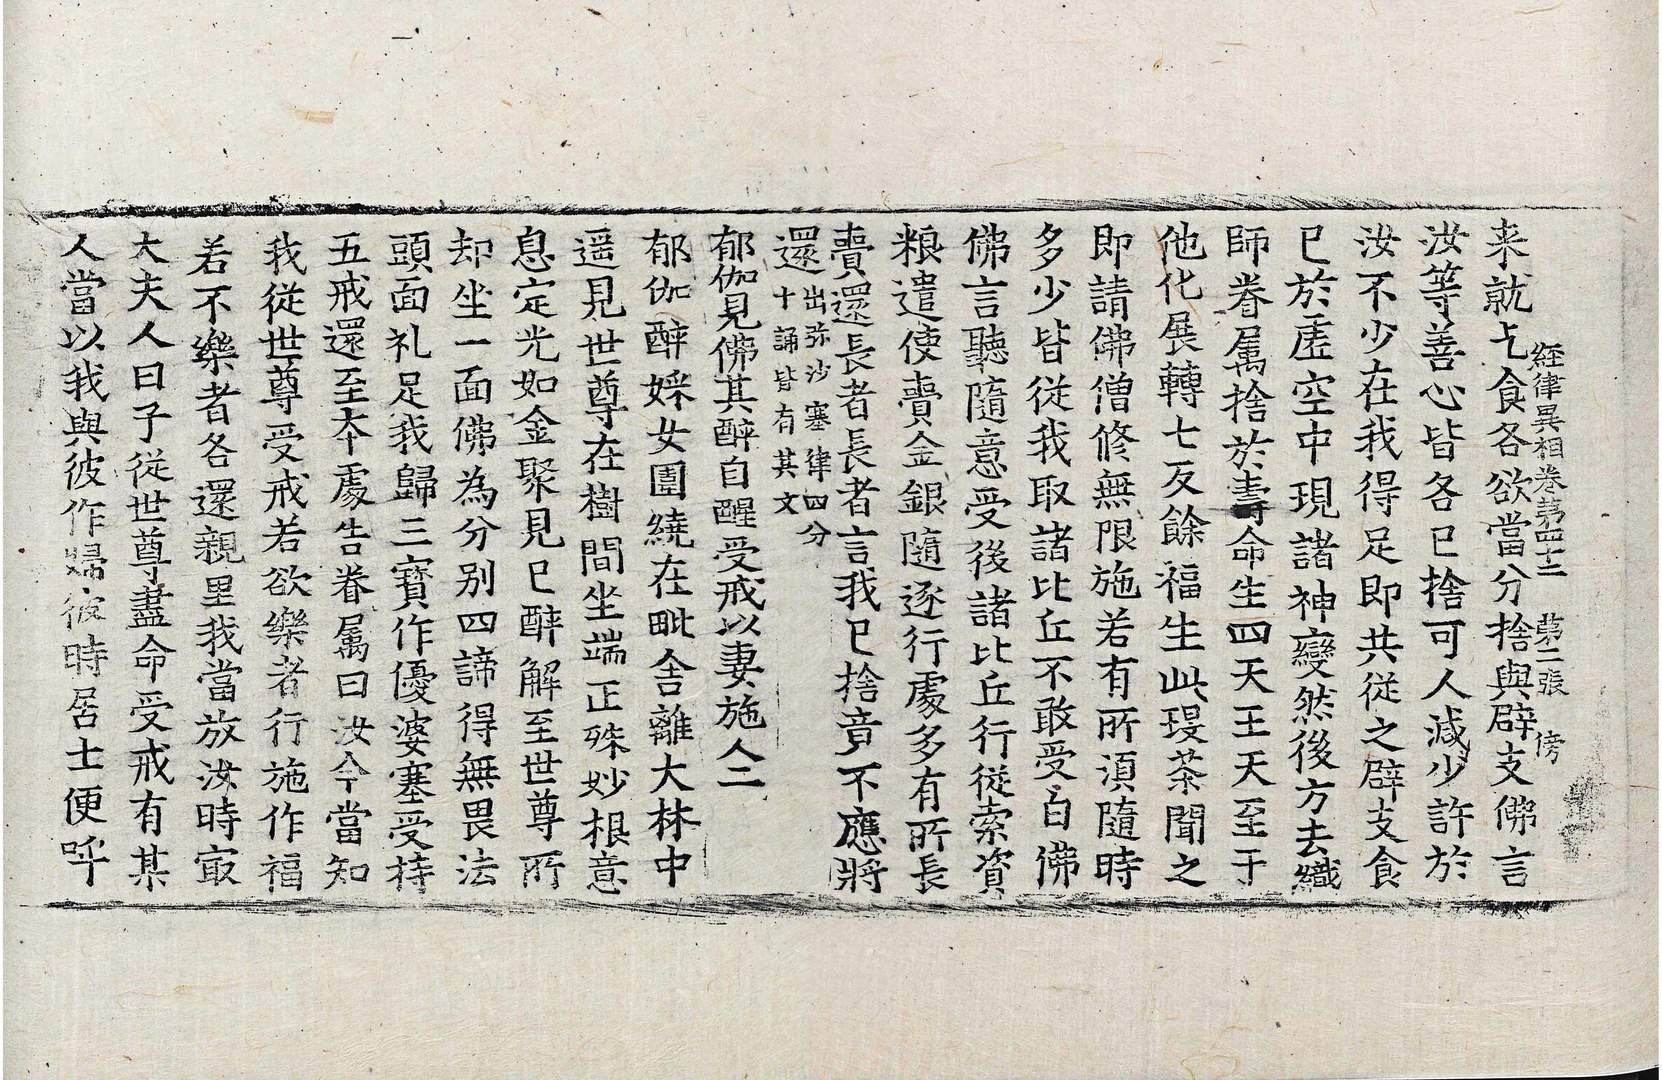 経律異相卷苐四十二 第二張 傍
来就乞食各欲當分捨與辟支佛言
汝等善心皆各已捨可人減少許於
汝不少在我得足即共從之辟支食
已於虛空中現諸神變然後方去織
師眷属捨於壽命生四天王天至于
他化展轉七反餘福生此琝茶聞之
即請佛僧修無限施若有所湏隨時
多少皆從我取諸比丘不敢受白佛
佛言聽隨意受後諸比丘行從索資
粮遣使賷金銀隨逐行處多有所長
賷還長者長者言我已捨竟不應將
還出弥沙塞律四分
十誦皆有其文
郁伽見佛其醉自醒受戒以妻施人二
郁伽醉婇女圍繞在毗舍離大林中
遥見世尊在樹間坐端正殊妙根意
息定光如金聚見已醉解至世尊所
却坐一面佛為分别四諦得無畏法
頭面礼足我歸三寶作優婆塞受持
五戒還至本處告眷属曰汝今當知
我從世尊受戒若欲樂者行施作福
若不樂者各還親里我當放汝時㝡
大夫人曰子從世尊盡命受戒有某
人當以我與彼作婦彼時居士便呼